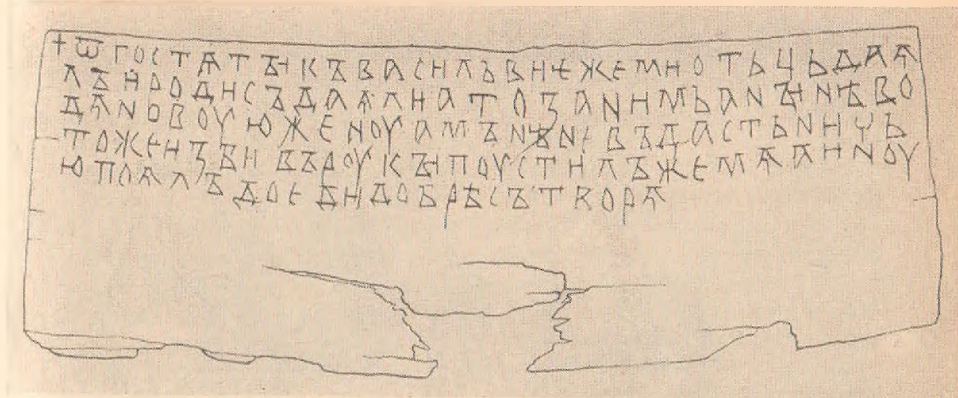 +ѿгостѧтъікъвасильвиѥжемиотьцьдаѧ
лъиродисъдаѧлиатозанимьанъінѣво
дѧновоуюженоуамънѣневъдастьничь
тожеизбивъроукъіпоустилъжемѧаиноу
юпоѧлъдоедидобрѣсътворѧ